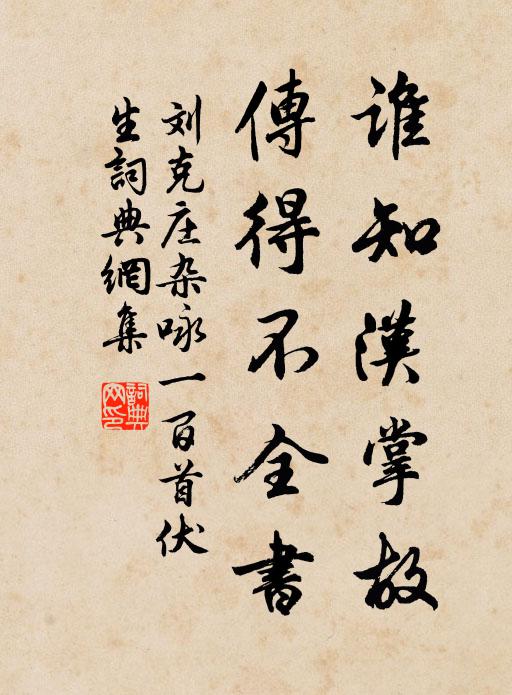 谁知漢掌故
傳得不全書
刘克庄杂咏一百首伏
生詞典網集
詞典网印